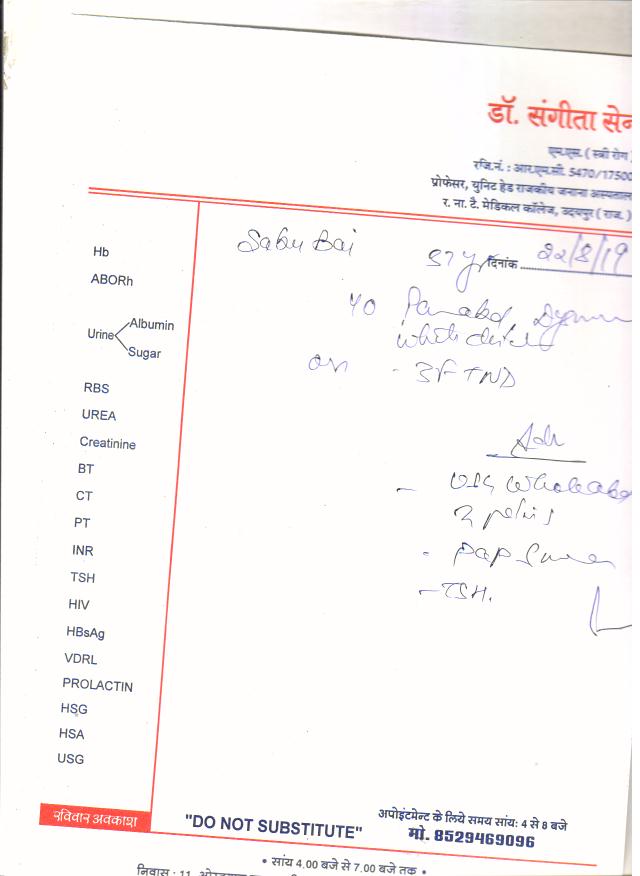 डॉ. संगीता सेन
एम.एस. ( स्त्री रोग )
रजि.नं. : आर.एम.सी. 5470/17500
प्रोफेसर, युनिट हेड राजकीय जनाना अस्पताल
र. ना. टै. मेडिकल कॉलेज, उदयपुर ( राज. )
दिनांक 22/8/19
white
- 3F TND
Adv
- USG Whole abd
- Pap Smear
- TSH.
Hb
ABORh
Urine Albumin
Sugar
RBS
UREA
Creatinine
BT
CT
PT
INR
TSH
HIV
HBsAg
VDRL
PROLACTIN
HSG
HSA
USG
रविवार अवकाश
"DO NOT SUBSTITUTE"
अपोइंटमेन्ट के लिये समय सांय: 4 से 8 बजे
मो. 8529469096
• सांय 4.00 बजे से 7.00 बजे तक •
निवास : 11,